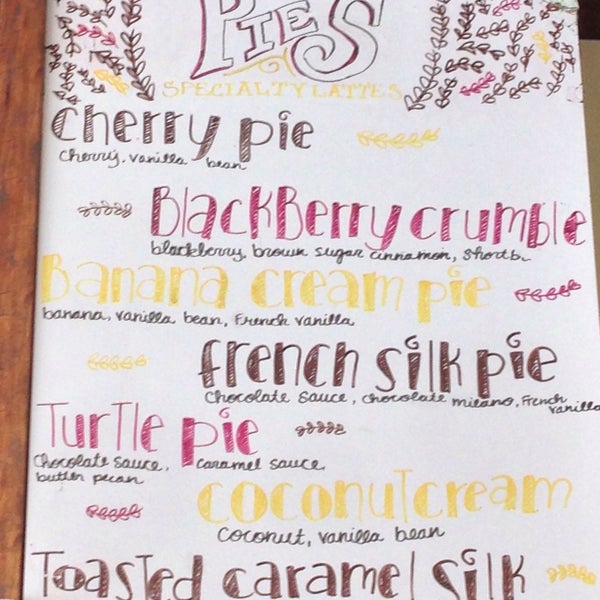 PIES
SPECIALTY LATTES
cherry pie
cherry, vanilla bean
BlackBerry crumble
blackberry, brown sugar cinnamon, shortb
Banana cream pie
banana, vanilla bean, French vanilla
french silk pie
chocolate sauce, chocolate milano, French
vanilla
Turtle pie
chocolate sauce, caramel sauce,
butter pecan
coconut cream
coconut, vanilla bean
Toasted caramel silk